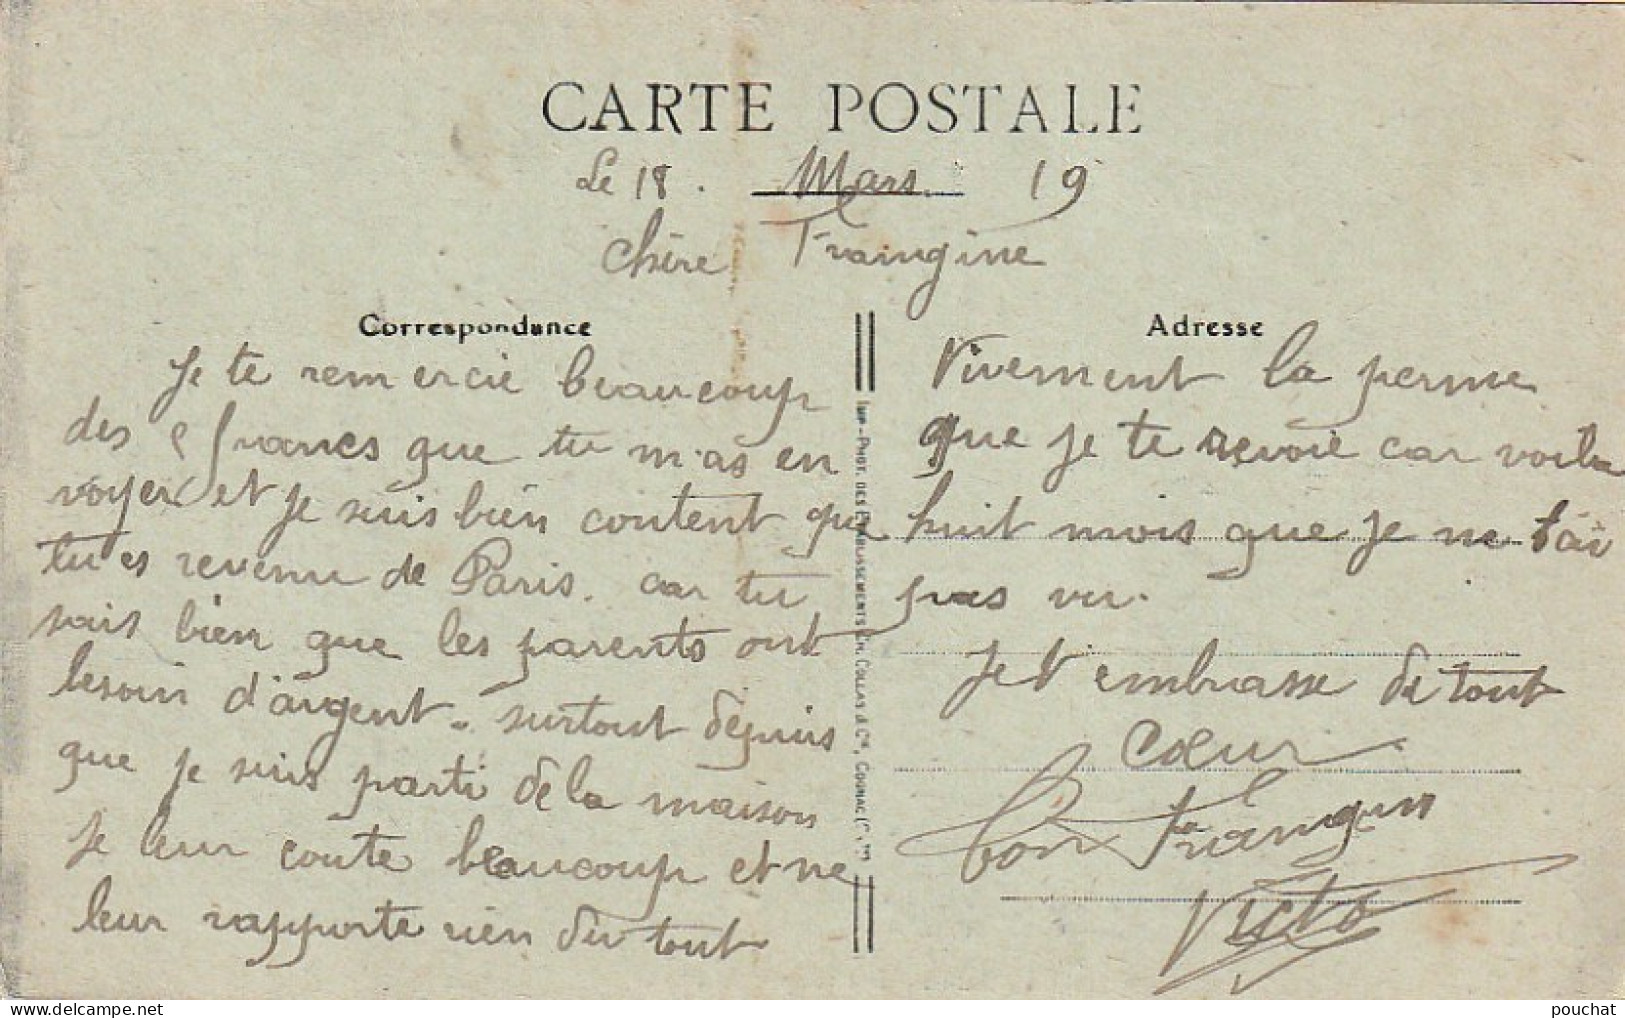 CARTE POSTALE
Le 18. Mars. 19
Chère Frangine
Correspondance
Je te remercie beaucoup
des francs que tu m'as en
voyer et je suis bien content que
tu es revenu de Paris. car tu
sais bien que les parents ont
besoin d'argent. surtout depuis
que je suis parti de la maison
je leur coute beaucoup et ne
leur rapporte rien du tout
IMP.-PHOT. DES ETABLISSEMENTS CH. COLLAS & Cie, COGNAC
Adresse
Vivement la perme
que je te revoie car voila
huit mois que je ne t'ai
pas vu.
Je t'embrasse du tout
cœur
Ton Frangin
Victo
pouchat